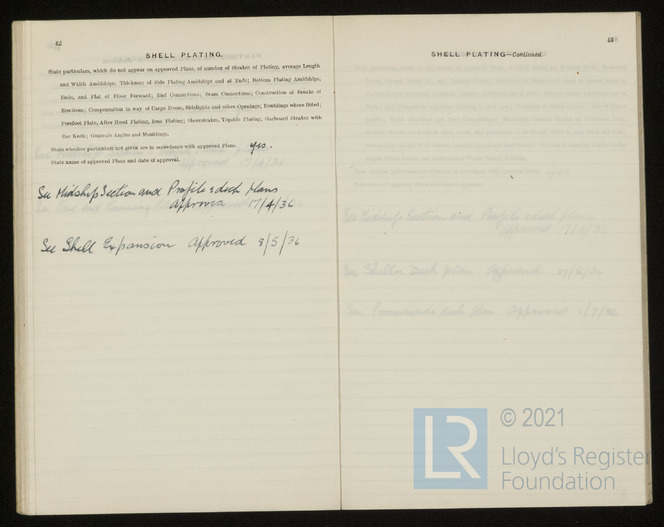 42
SHELL PLATING.
State particulars, which do not appear on approved Plans, of number of Strakes of Plating, average Length
and Width Amidships; Thickness of Side Plating Amidships and at Ends; Bottom Plating Amidships,
Ends, and Flat of Floor Forward; End Connections; Seam Connections; Construction at Breaks of
Erections; Compensation in way of Cargo Doors, Sidelights and other Openings; Doublings where fitted;
Forefoot Plate, After Hood Plating, Boss Plating; Sheerstrakes, Topside Plating, Garboard Strakes with
Bar Keels; Gunwale Angles and Mouldings.
State whether particulars not given are in accordance with approved Plans. yes.
State name of approved Plans and date of approval.
See Midship Section and Profile & deck Plans
approved 17/4/36
See Shell Expansion Approved 8/5/36
43
SHELL PLATING—Continued.
LR
© 2021
Lloyd's Register
Foundation